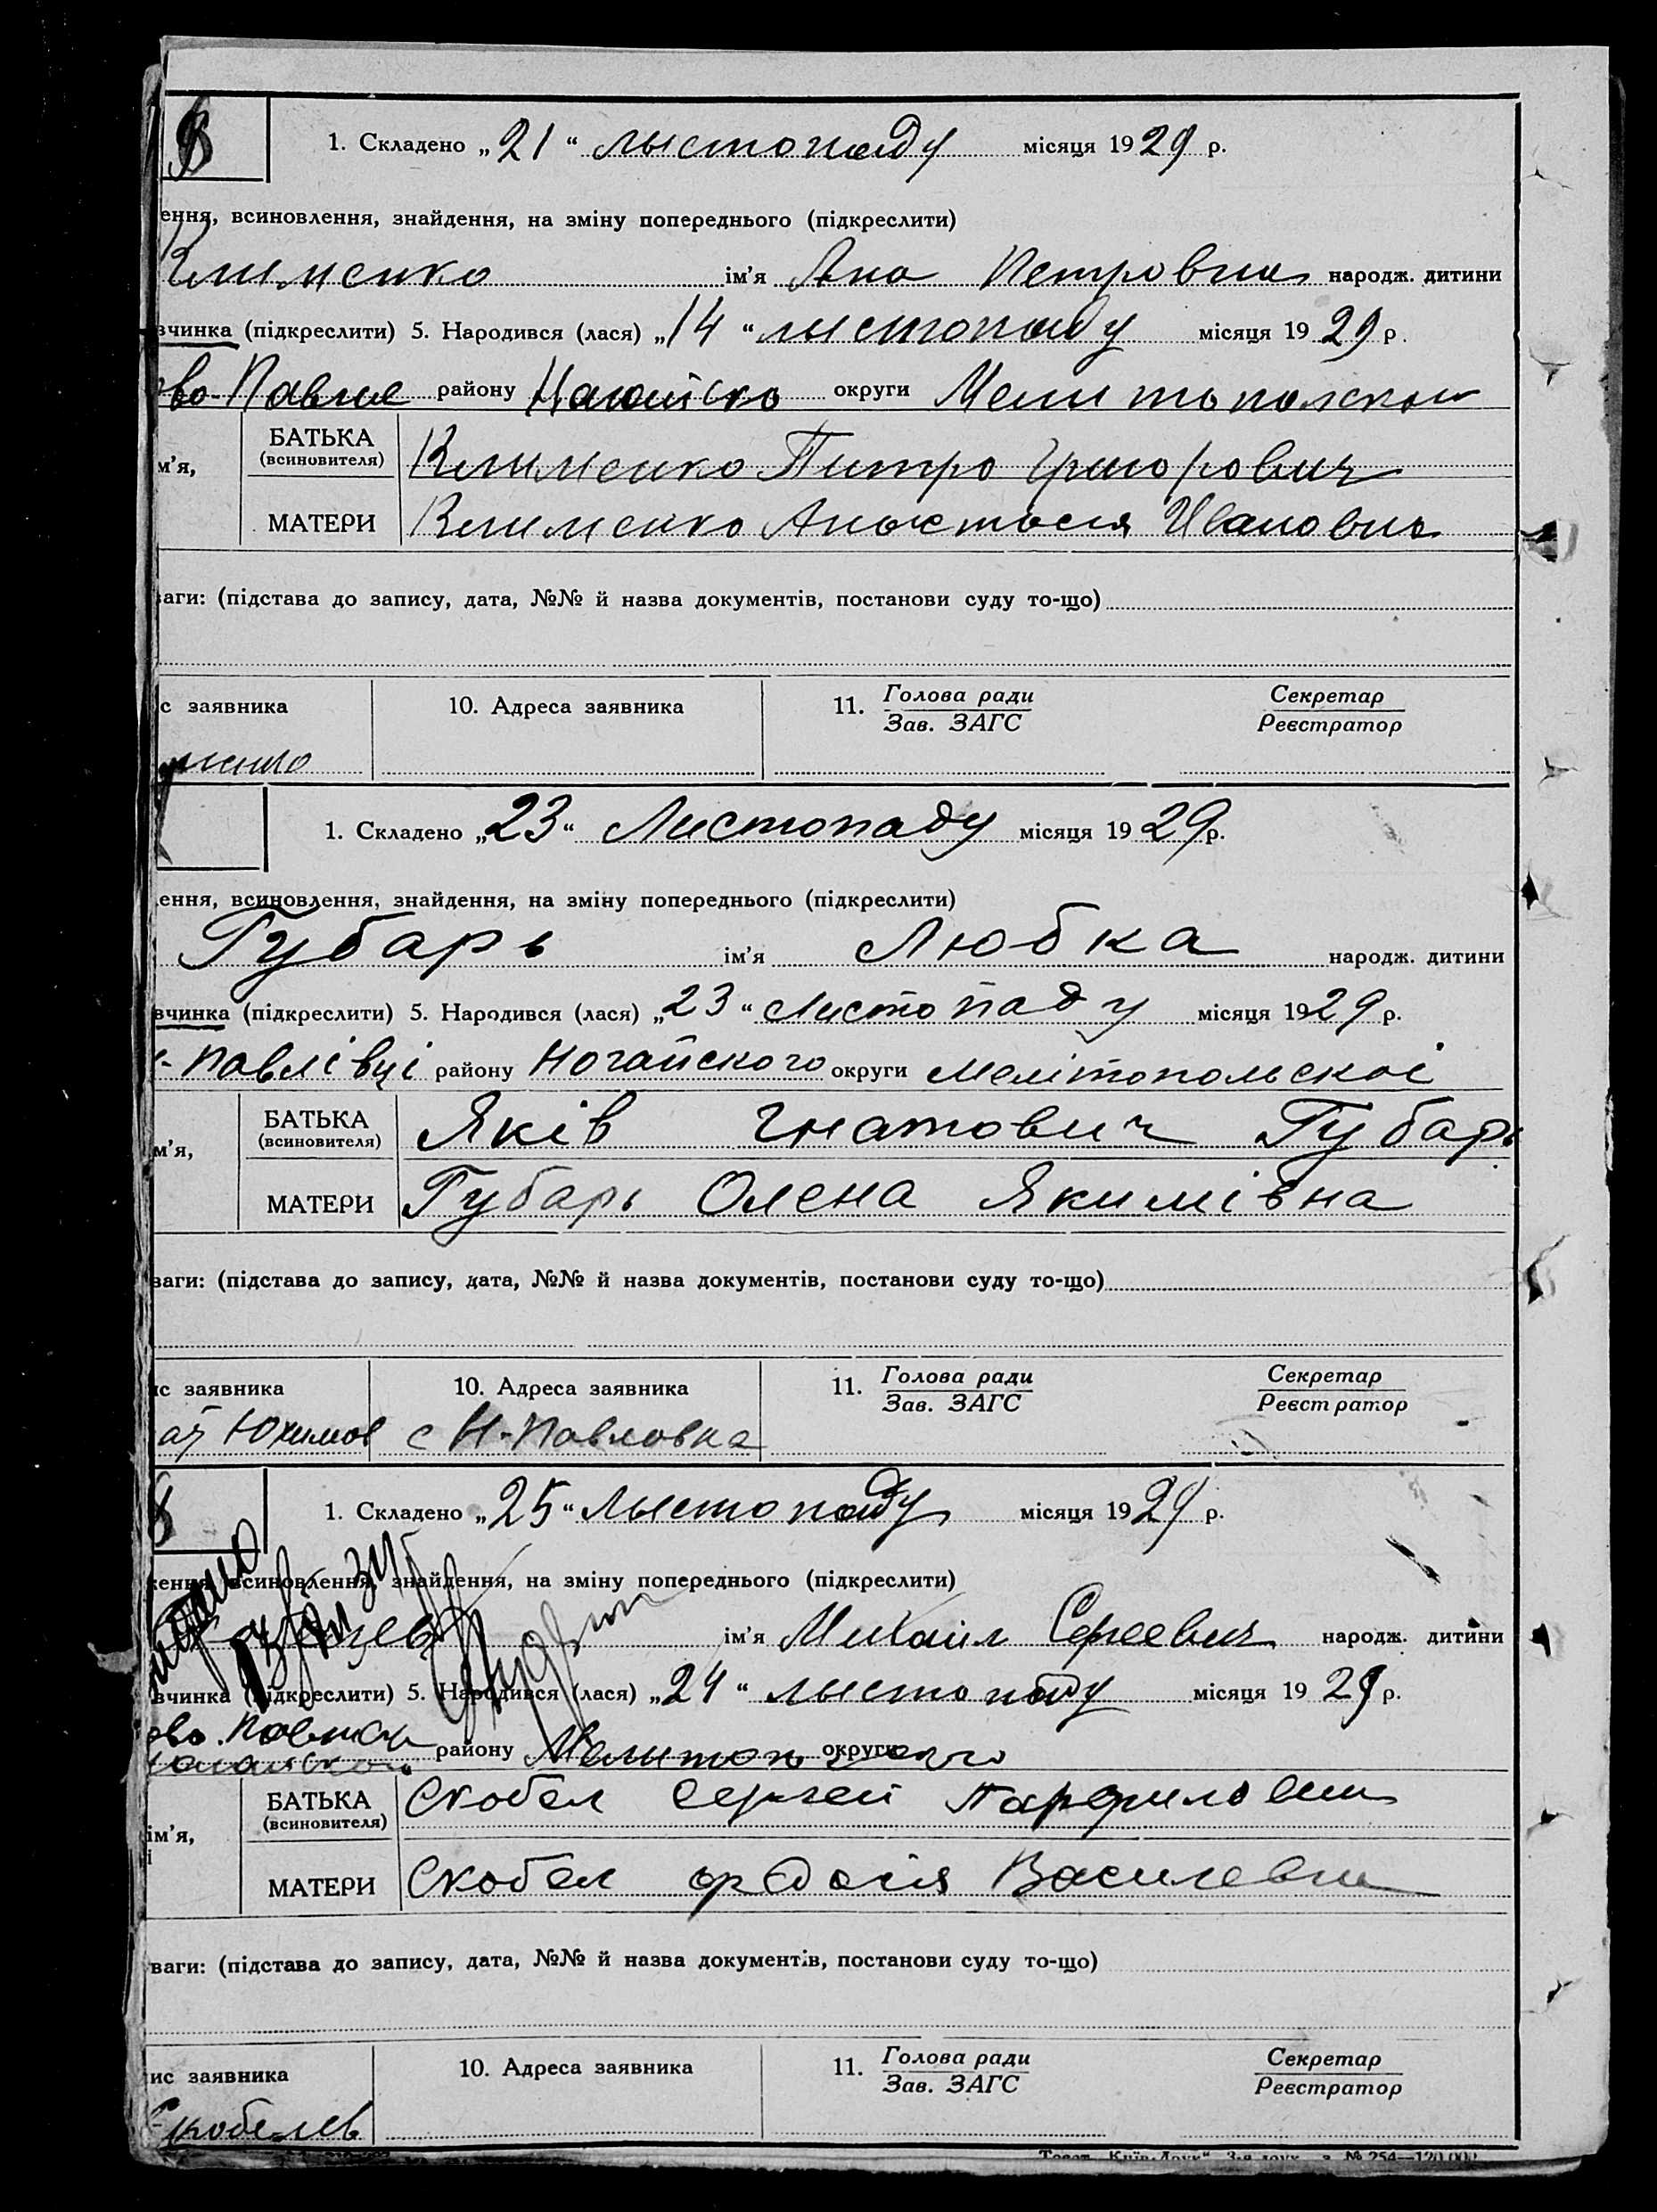 1. Складено „21“ лыстопаду місяця 1929 р.
ення, всиновлення, знайдення, на зміну попереднього (підкреслити)
Клименко ім’я Ана Петровна народж. дитини
вчинка (підкреслити) 5. Народився (лася) „14“ листопаду місяця 1929 р.
району округи
м’я,
БАТЬКА
(всиновителя)
Клименко Питро Григорович
МАТЕРИ Клименко Анастасия Ивановна
ваги: (підстава до запису, дата, №№ й назва документів, постанови суду то-що)
с заявника 10. Адреса заявника 11. Голова ради Секретар
Зав. ЗАГС Реєстратор
1. Складено „23“ Листопаду місяця 1929 р.
ення, всиновлення, знайдення, на зміну попереднього (підкреслити)
Губарь ім’я Любка народж. дитини
вчинка (підкреслити) 5. Народився (лася) „23“ Листопаду місяця 1929 р.
-Павлівці району Ногайского округи Мелітопольскоі
БАТЬКА
(всиновителя)
Яків Гнатович Губарь
м’я,
МАТЕРИ Губарь Олена Якимівна
ваги: (підстава до запису, дата, №№ й назва документів, постанови суду то-що)
с заявника 10. Адреса заявника 11. Голова ради Секретар
Зав. ЗАГС Реєстратор
с Н-Павловка
1. Складено „25“ лыстопаду місяця 1929 р.
ення, всиновлення, знайдення, на зміну попереднього (підкреслити)
ім’я Михаил Сергеевич народж. дитини
вчинка (підкреслити) 5. Народився (лася) „24“ лыстопаду місяця 1929 р.
району округи
БАТЬКА
(всиновителя)
Скобел Сергей
ім’я,
МАТЕРИ Скобел Василевна
ваги: (підстава до запису, дата, №№ й назва документів, постанови суду то-що)
ис заявника 10. Адреса заявника 11. Голова ради Секретар
Зав. ЗАГС Реєстратор
Скобелев